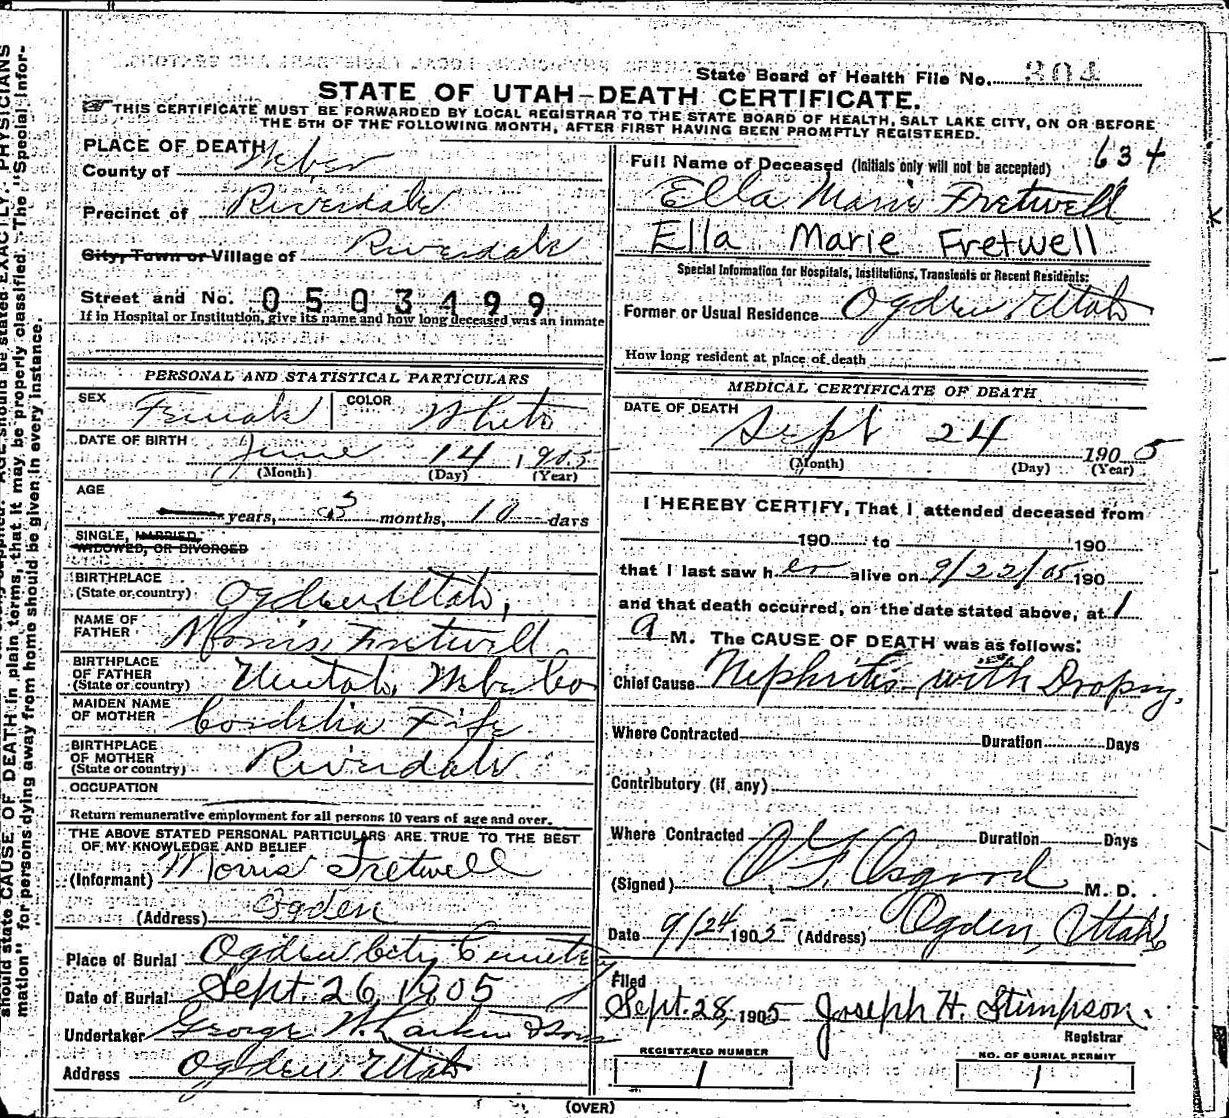 State Board of Health File No. 804
STATE OF UTAH—DEATH CERTIFICATE.
THIS CERTIFICATE MUST BE FORWARDED BY LOCAL REGISTRAR TO THE STATE BOARD OF HEALTH, SALT LAKE CITY, ON OR BEFORE
THE 5TH OF THE FOLLOWING MONTH, AFTER FIRST HAVING BEEN PROMPTLY REGISTERED.
634
PLACE OF DEATH
County of Weber
Precinct of Riverdale
City, Town or Village of Riverdale
Street and No. 0503499
If in Hospital or Institution, give its name and how long deceased was an inmate
PERSONAL AND STATISTICAL PARTICULARS
SEX Female COLOR White
DATE OF BIRTH June 14, 1905
(Month) (Day) (Year)
AGE
years, 3 months, 10 days
SINGLE, MARRIED,
WIDOWED, OR DIVORCED
BIRTHPLACE
(State or country) Ogden Utah,
NAME OF
FATHER Morris Fretwell
BIRTHPLACE
OF FATHER
(State or country) Uintah, Weber Co
MAIDEN NAME
OF MOTHER Cordelia Fife
BIRTHPLACE
OF MOTHER
(State or country) Riverdale
OCCUPATION
Return remunerative employment for all persons 10 years of age and over.
THE ABOVE STATED PERSONAL PARTICULARS ARE TRUE TO THE BEST
OF MY KNOWLEDGE AND BELIEF
(Informant) Morris Fretwell
(Address) Ogden
Place of Burial Ogden City Cemetery
Date of Burial Sept. 26, 1905
Undertaker George W. Larkin & Sons
Address Ogden Utah
Full Name of Deceased (Initials only will not be accepted)
Ella Marie Fretwell
Ella Marie Fretwell
Special Information for Hospitals, Institutions, Transients or Recent Residents:
Former or Usual Residence Ogden Utah
How long resident at place of death
MEDICAL CERTIFICATE OF DEATH
DATE OF DEATH
Sept 24 1905
(Month) (Day) (Year)
I HEREBY CERTIFY, That I attended deceased from
190 to 190
that I last saw her alive on 9/22/05 190
and that death occurred, on the date stated above, at 1
a M. The CAUSE OF DEATH was as follows:
Chief Cause Nephritis with Dropsy.
Where Contracted Duration Days
Contributory (if any)
Where Contracted Duration Days
(Signed) O F. Osgood M. D.
Date 9/24 1905 (Address) Ogden, Utah
Filed
Sept. 28, 1905 Joseph H. Stimpson.
Registrar
REGISTERED NUMBER
1
NO. OF BURIAL PERMIT
1
(OVER)
should state CAUSE OF DEATH in plain terms, that it may be properly classified. The "Special Infor-
mation" for persons dying away from home should be given in every instance.